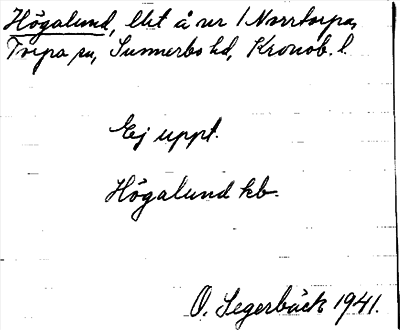 Högalund, lht å nr 1 Norrtorpa,
Torpa sn, Sunnerbo hd, Kronob. l.
Ej uppt.
Högalund kb.
O. Segerbäck 1941.